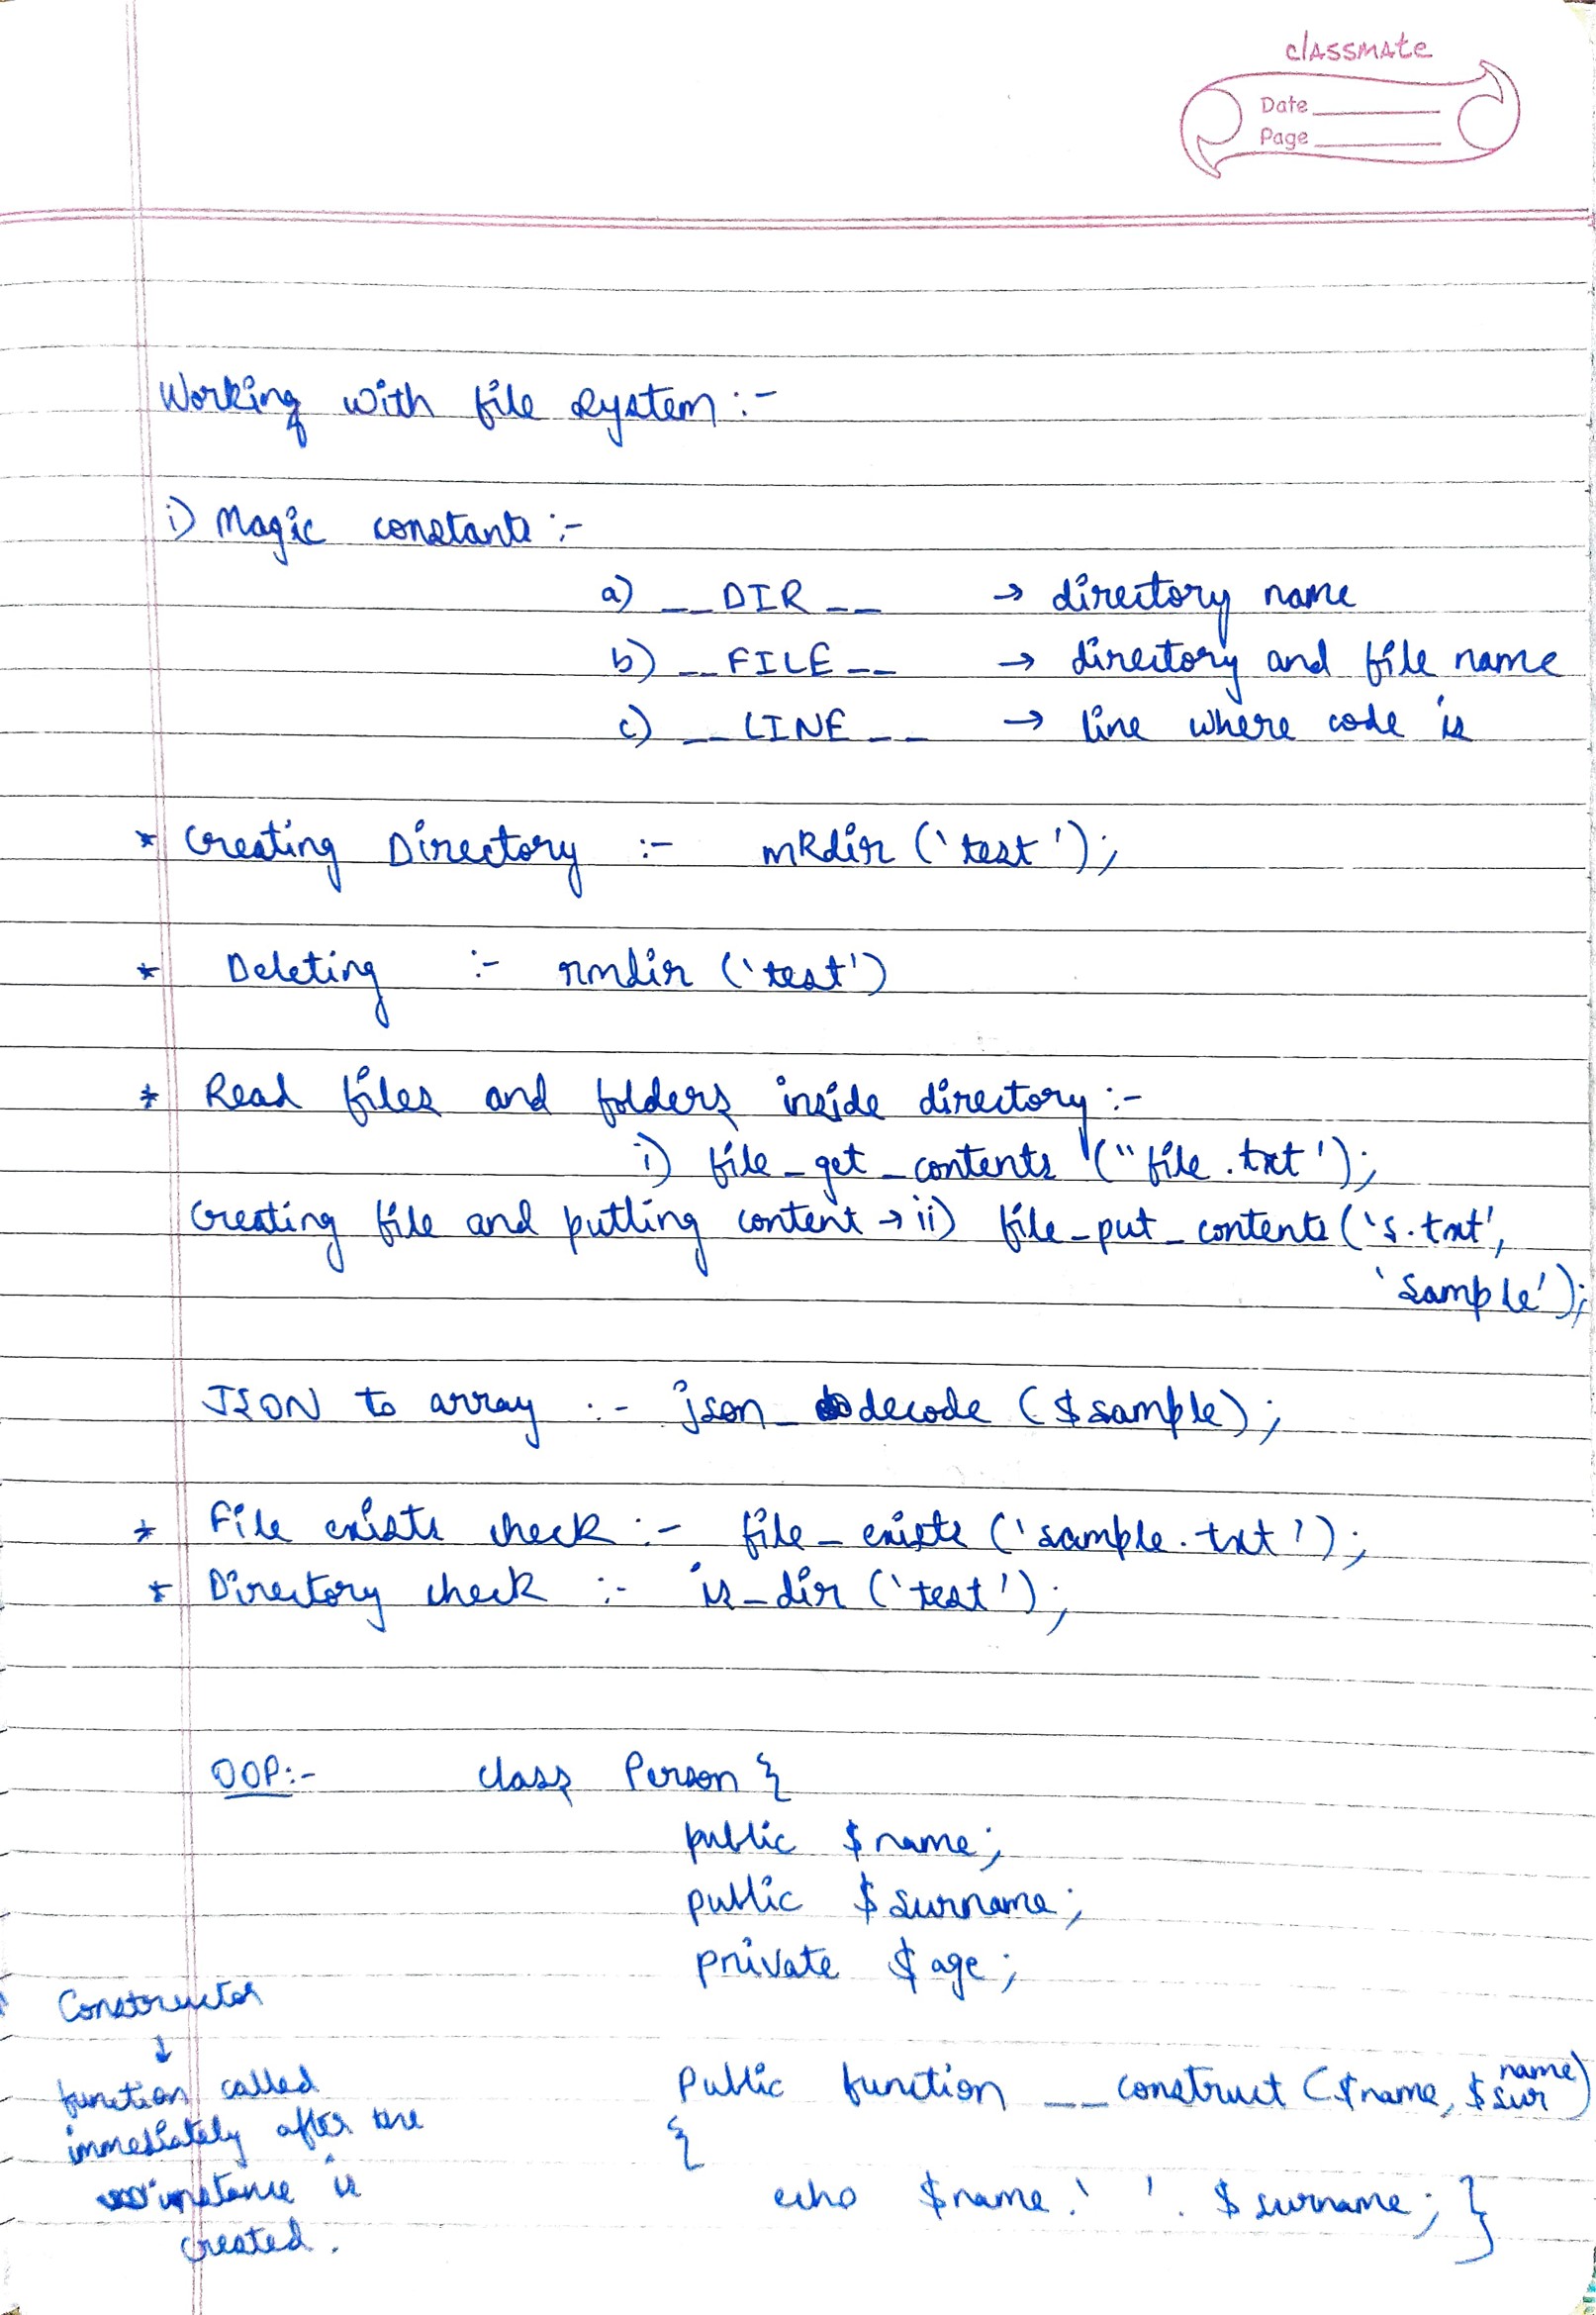 classmate
Date
Page
Working with file system :-
i) Magic constants :-
a) __DIR__ → directory name
b) __FILE__ → directory and file name
c) __LINE__ → line where code is
* Creating Directory :- mkdir ('test');
* Deleting :- rmdir ('test')
* Read files and folders inside directory :-
i) file_get_contents ("file.txt');
Creating file and putting content → ii) file_put_contents ('s.txt',
'sample');
JSON to array :- json_decode ($sample);
* File exists check :- file_exists ('sample.txt');
* Directory check :- is_dir ('test');
OOP:- class Person {
public $name;
public $surname;
private $age;
Constructor
↓
function called
immediately after the
instance is
created.
Public function __construct ($name, $surname)
{
echo $name.' '. $surname; }